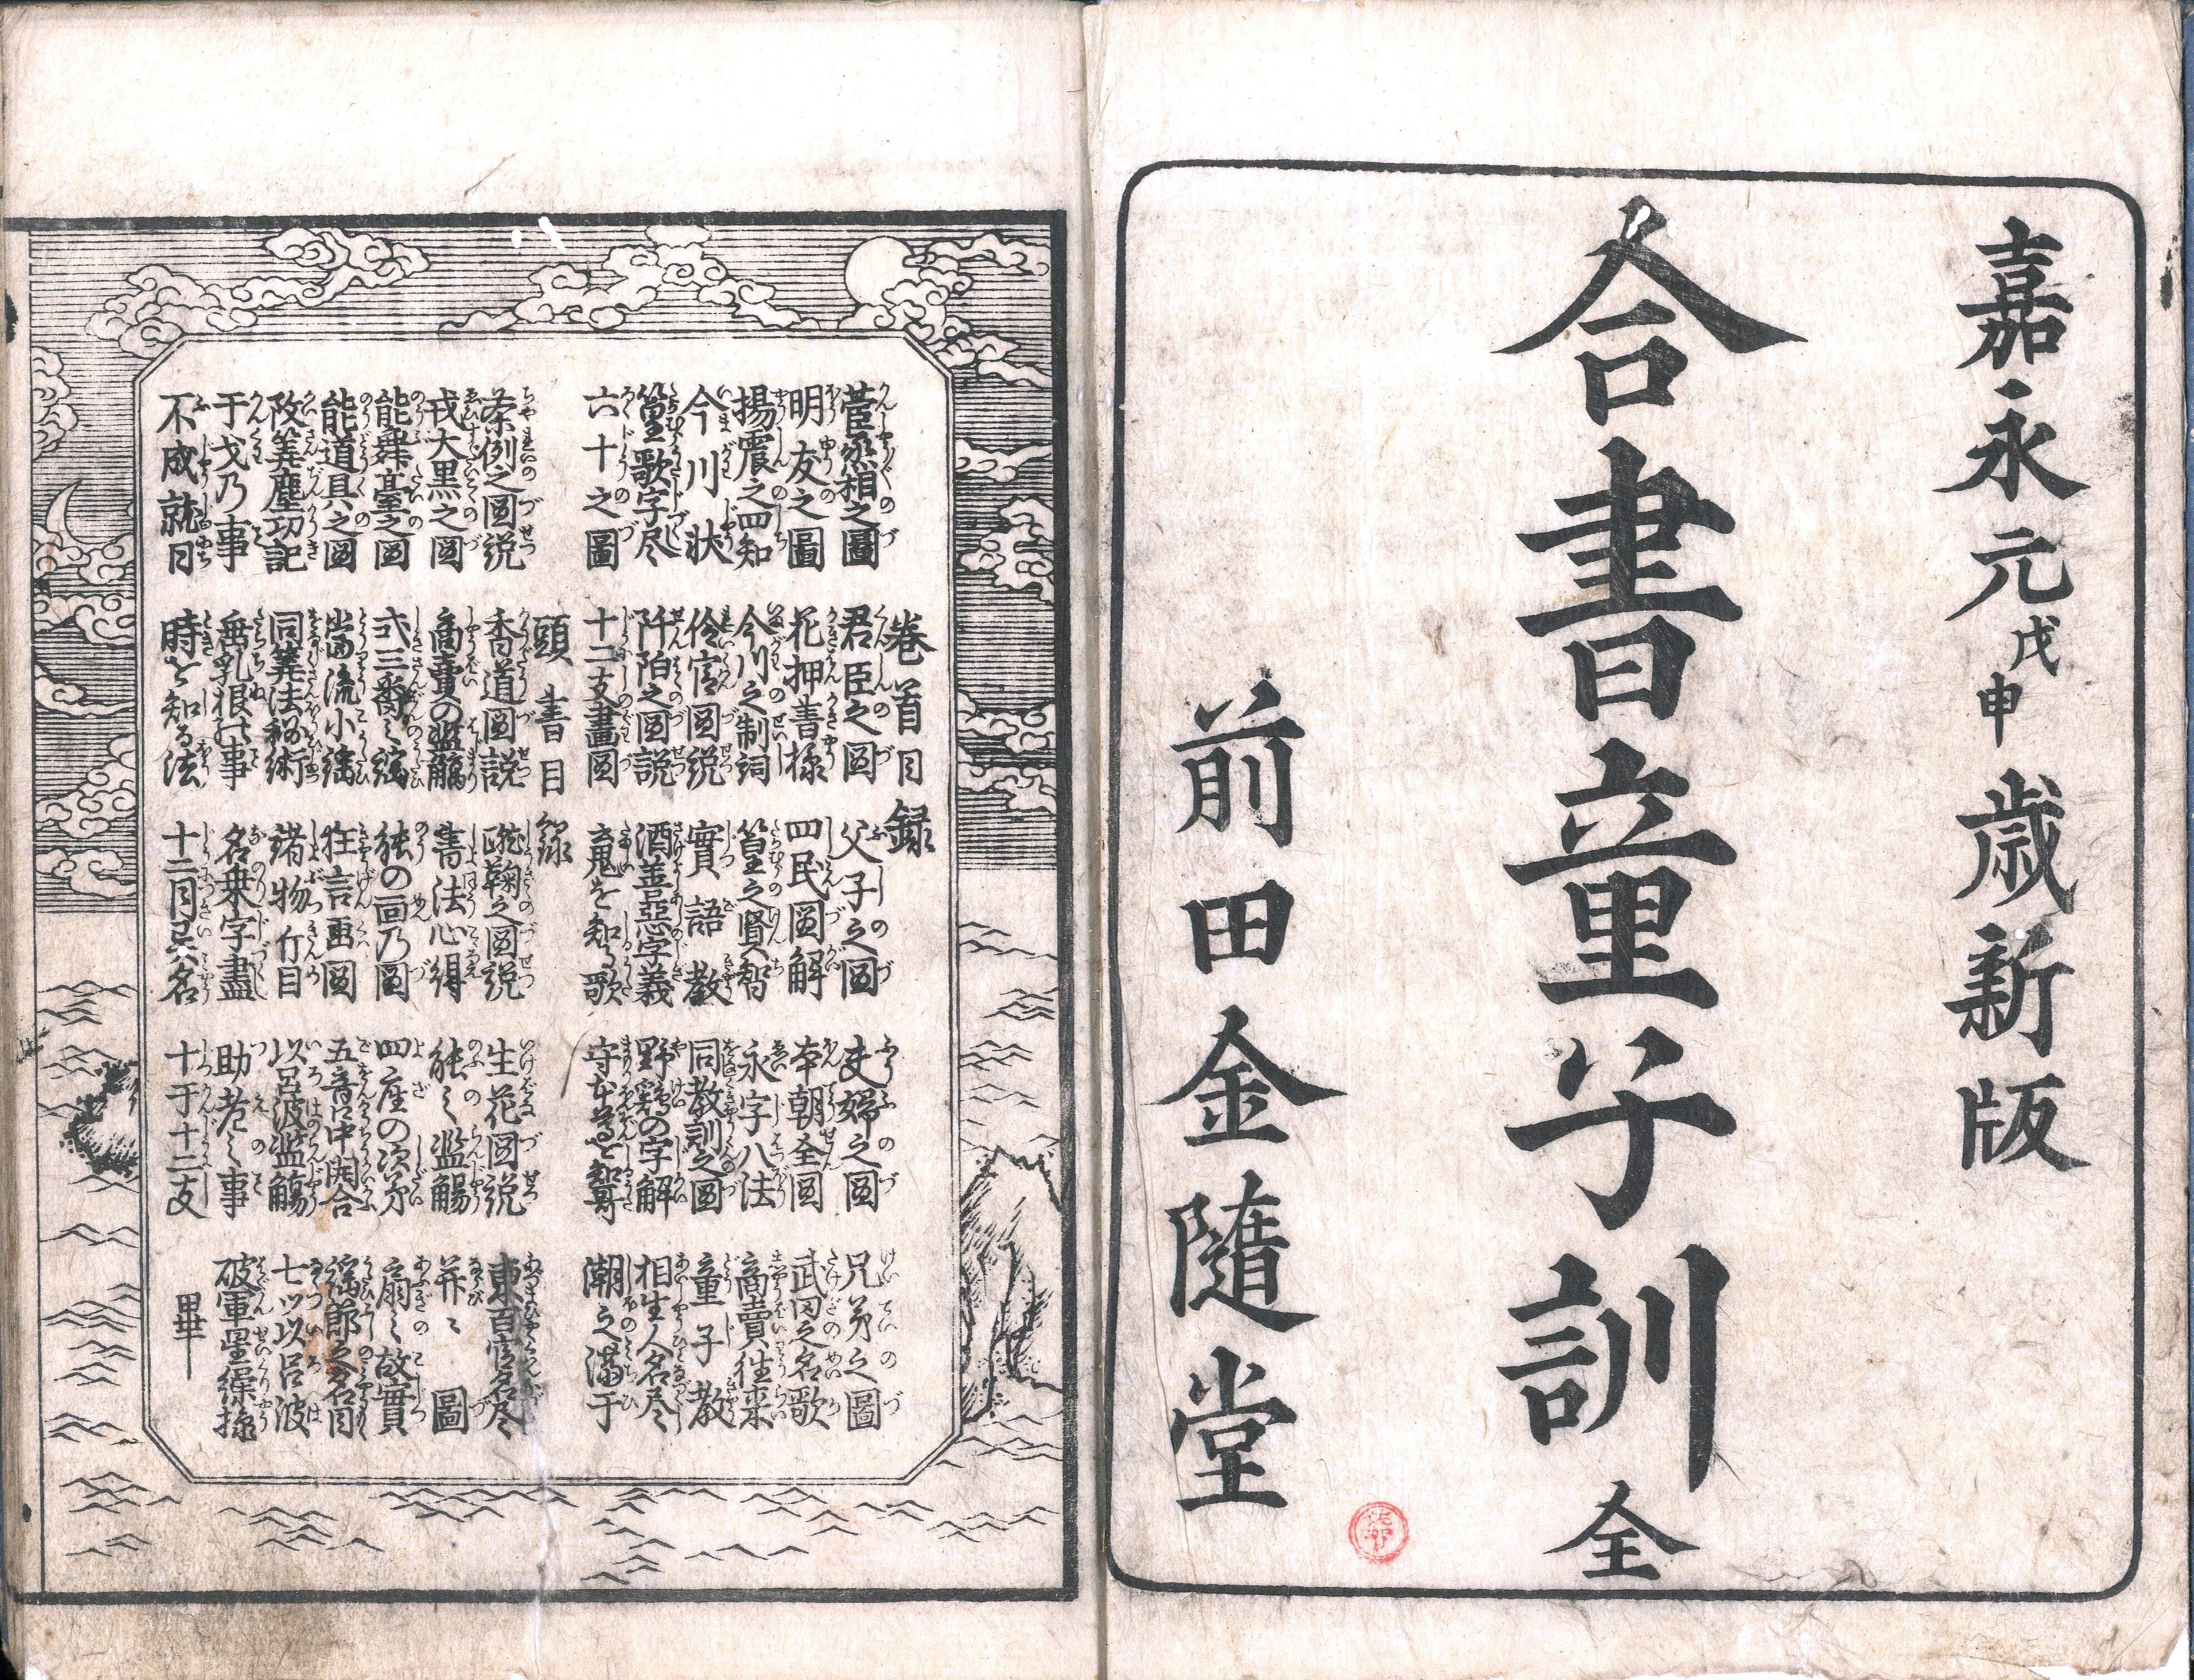 嘉永元戊申歳新版
合書童子訓 全
前田金隨堂
巻首目録
菅丞相之圖 君臣之図 父子之図 夫婦之図 兄弟之圖
明友之圖 花押書様 四民図解 本朝全図 武囚之名歌
揚震之四知 今川之制詞 篁之賢智 永字八法 商賣往来
今川状 伶官図説 實語教 同教訓之図 童子教
篁歌字尽 阡陌之図説 酒善惡字義 野鶏の字解 相生人名尽
六十之圖 十二支畫図 鬼を知る歌 守本尊を知哥 潮之満干
頭書目録
茶例之図説 香道図説 蹴鞠之図説 生花図説 東百官名尽
戎大黒之図 商賣の濫觴 書法心得 能之濫觴 并ニ圖
能舞臺之図 弍三番之謡 能の面乃圖 四座の次第 扇之故實
能道具之図 當流小謡 狂言画図 五音口中開合 謡節之名目
改算塵功記 同算法秘術 諸物斤目 以呂波濫觴 七ツ以呂波
干戈乃事 無乳根の事 名乗字盡 助老之事 破軍星繰様
不成就日 時を知る法 十二月異名 十干十二支 畢